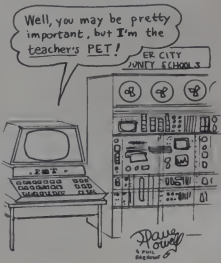 Well, you may be pretty
important, but I'm the
teacher's PET!
ER CITY
UNITY SCHOOLS
PET
Dave
& PHIL